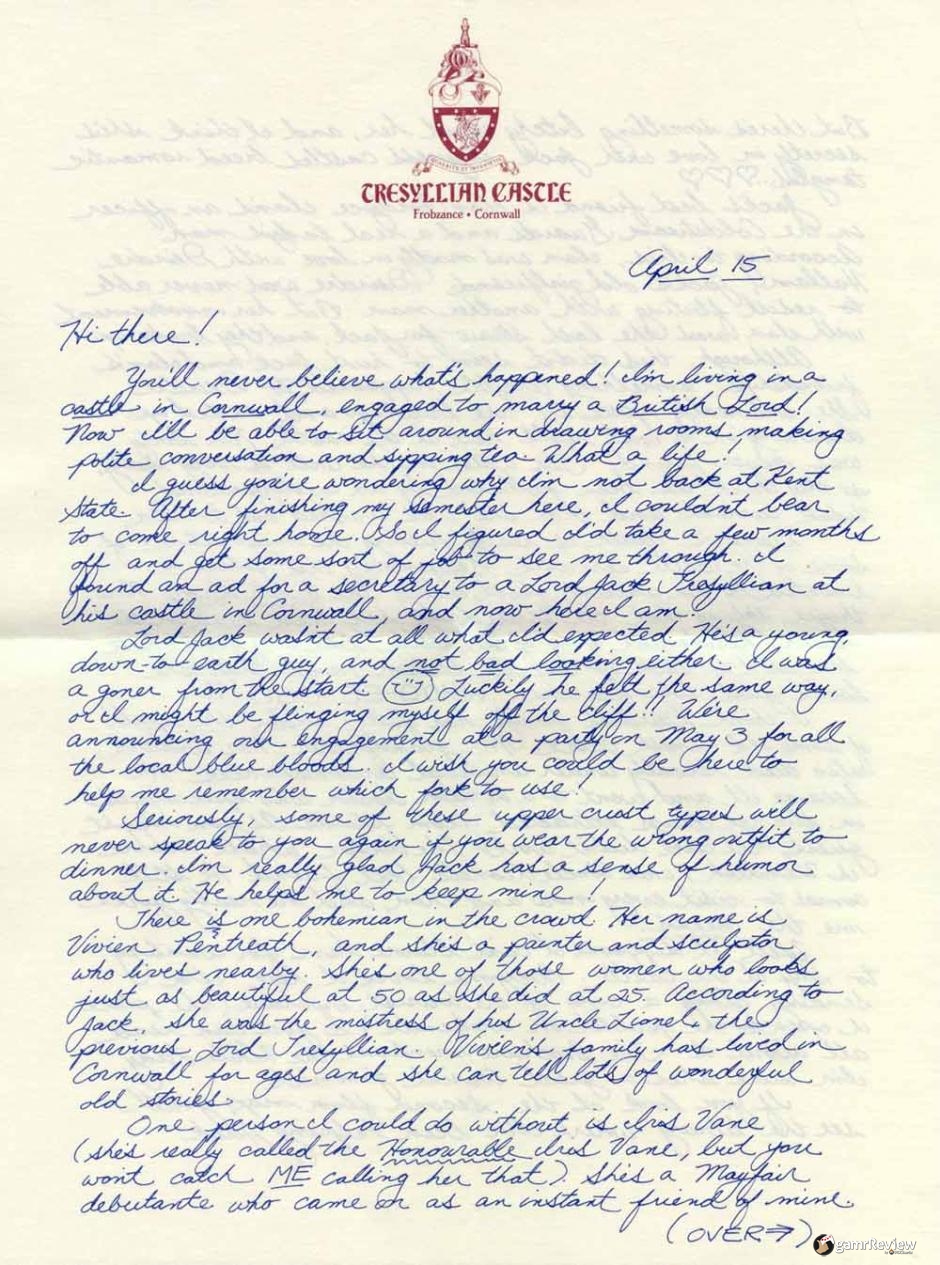 TRESYLLIAN CASTLE
Frobzance • Cornwall
April 15
Hi there!
You'll never believe what's happened! I'm living in a
castle in Cornwall, engaged to marry a British Lord!
Now I'll be able to sit around in drawing rooms making
polite conversation and sipping tea. What a life!
I guess you're wondering why I'm not back at Kent
State. After finishing my semester here, I couldn't bear
to come right home. So I figured I'd take a few months
off and get some sort of job to see me through. I
found an ad for a secretary to a Lord Jack Tresyllian at
his castle in Cornwall, and now here I am.
Lord Jack wasn't at all what I'd expected. He's a young,
down-to earth guy, and not bad looking either. I was
a goner from the start. Luckily he felt the same way,
or I might be flinging myself off the cliff!! We're
announcing our engagement at a party on May 3 for all
the local blue bloods. I wish you could be there to
help me remember which fork to use!
Seriously, some of these upper crust types will
never speak to you again if you wear the wrong outfit to
dinner. I'm really glad Jack has a sense of humor
about it. He helps me to keep mine!
There is one bohemian in the crowd. Her name is
Vivien Pentreath, and she's a painter and sculptor
who lives nearby. She's one of those women who looks
just as beautiful at 50 as she did at 25. According to
Jack, she was the mistress of his Uncle Lionel, the
previous Lord Tresyllian. Vivien's family has lived in
Cornwall for ages and she can tell lots of wonderful
old stories.
One person I could do without is Iris Vane
(she's really called the Honourable Iris Vane, but you
won't catch ME calling her that). She's a Mayfair
debutante who came on as an instant friend of mine.
(OVER→)
gamrReview